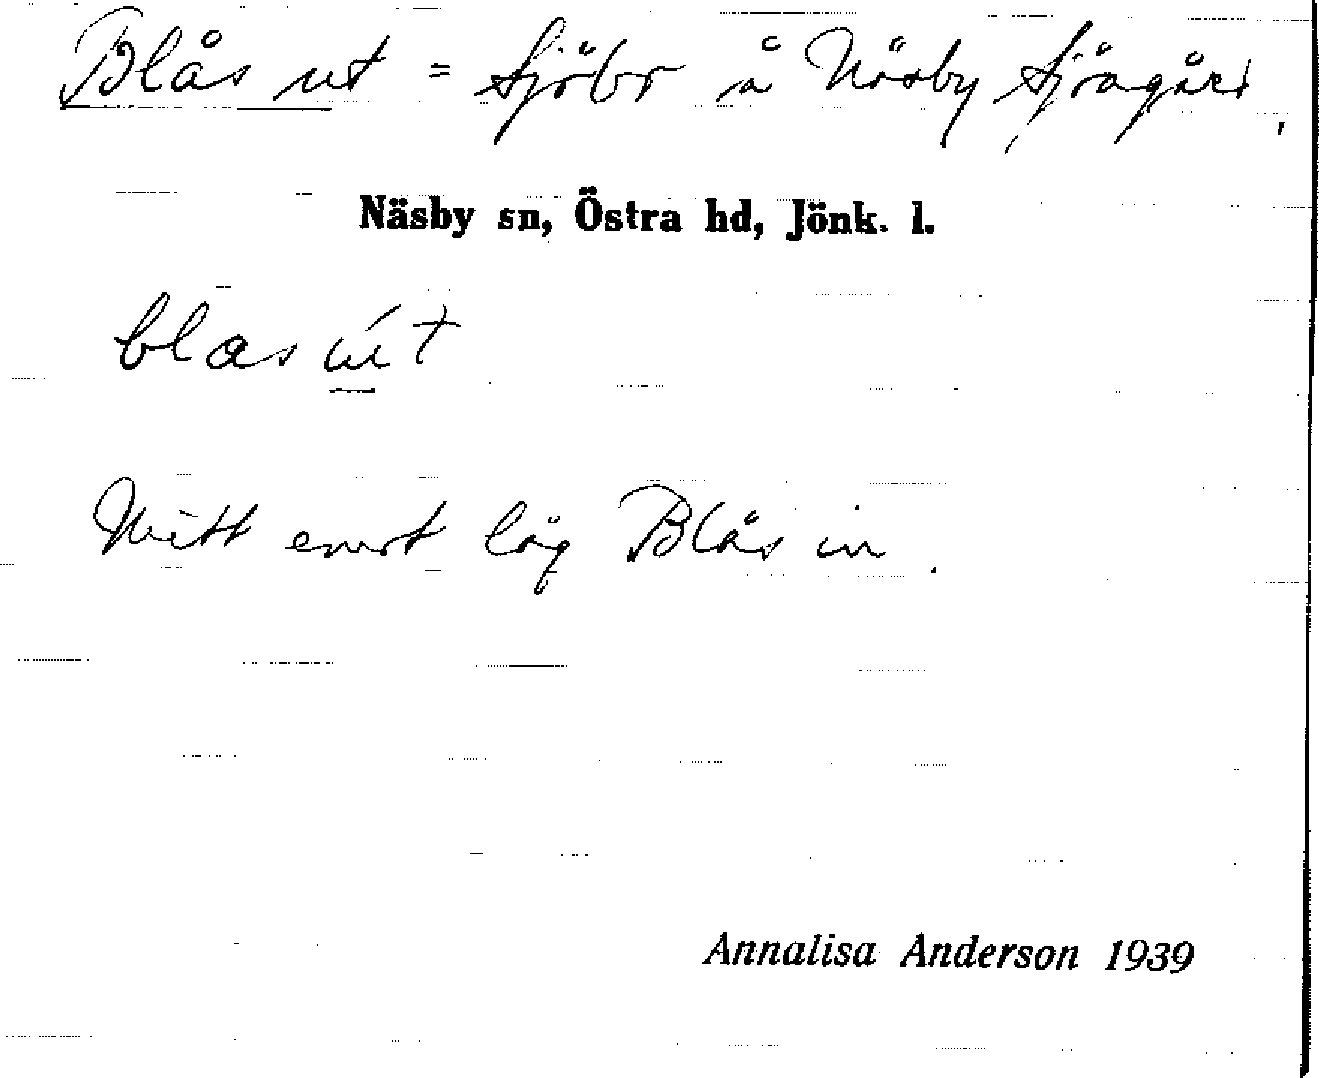 Blås ut = Sjöbo å Näsby Sjögård,
Näsby sn, Östra hd, Jönk. l.
blas út
Mitt emot låg Blås in.
Annalisa Anderson 1939